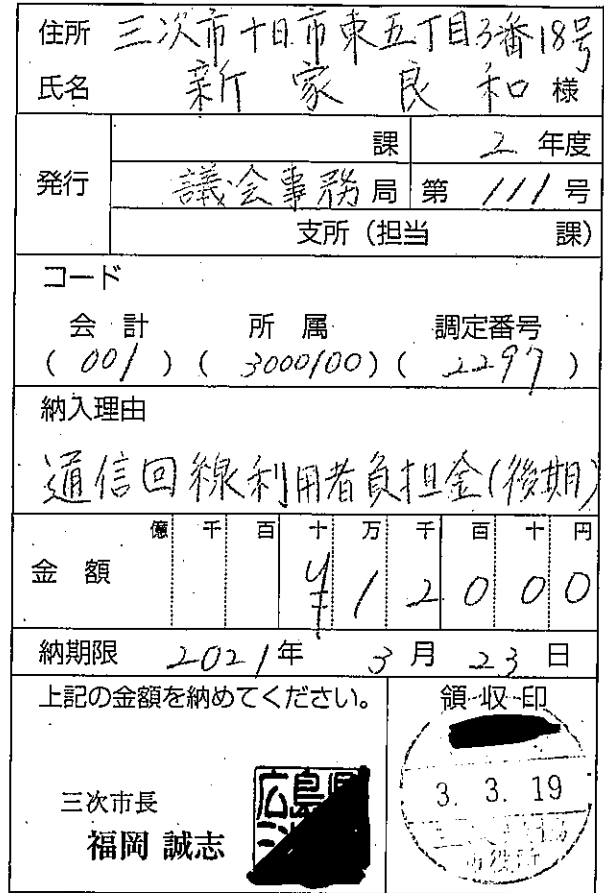 住所 三次市十日市東五丁目3番18号
氏名 新家良和 様
課 2 年度
発行 議会事務局 第 111 号
支所（担当 課）
コード
会計 所属 調定番号
( 001 ) ( 3000100 ) ( 2297 )
納入理由
通信回線利用者負担金(後期)
億 千 百 十 万 千 百 十 円
金額 ¥12000
納期限 2021年 3月 23日
上記の金額を納めてください。 領収印
3. 3. 19
三次市長
福岡 誠志
広島県
市役所